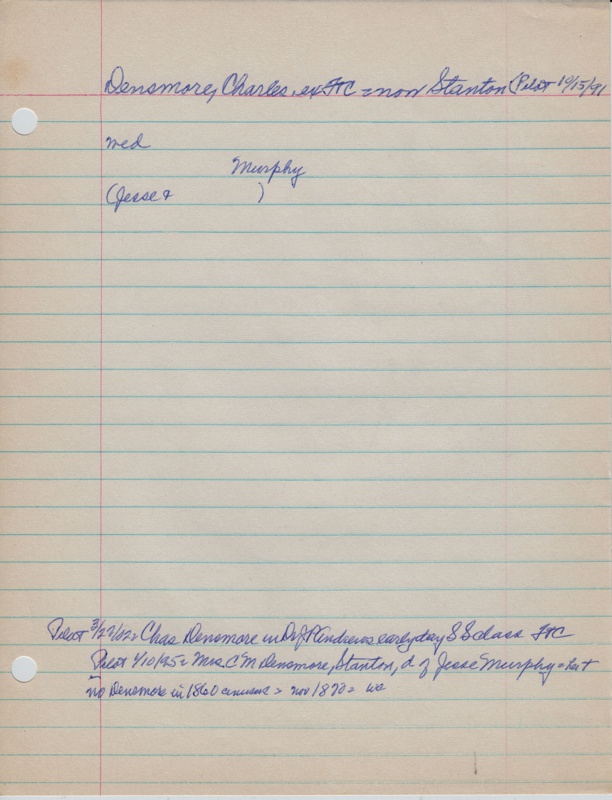 Densmore, Charles, ex FTC = now Stanton (Pilot 10/15/91
wed
Murphy
(Jesse & )
Pilot 3/27/02 = Chas Densmore in Dr J P Andrews early day S S class FTC
Pilot 1/10/95 = Mrs. C M Densmore, Stanton, d. of Jesse Murphy =
no Densmore in 1860 census = nor 1870 =